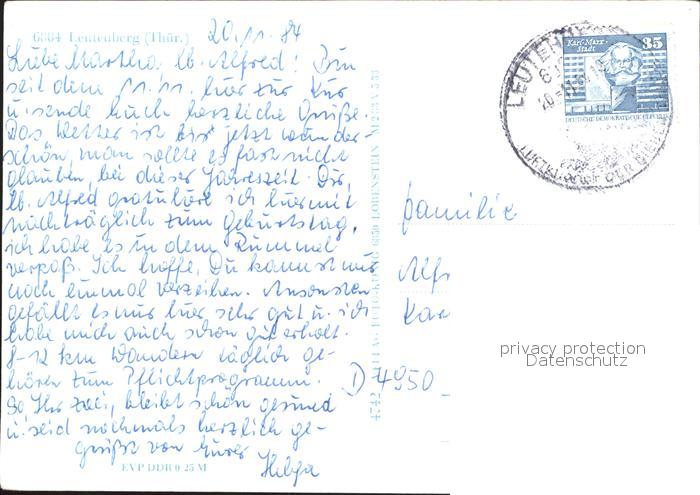 6804 Leutenberg (Thür.) 20.11.84
Liebe Martha, lb. Alfred! Bin
seit dem 11.11. hier zur Kur
u. sende Euch herzliche Grüße.
Das Wetter ist bis jetzt wunder
schön, man sollte es fast nicht
glauben, bei dieser Jahreszeit. Dir,
lb. Alfred gratuliere ich hiermit
nachträglich zum Geburtstag,
ich habe es in dem Rummel
verpaß. Ich hoffe, Du kannst mir
noch einmal verzeihen. Ansonsten
gefällt es mir hier sehr gut u. ich
habe mich auch schon gut erholt.
8-12 km Wandern täglich ge-
hören zum Pflichtprogramm.
So Ihr zwei, bleibt schön gesund
u. seid nochmals herzlich ge-
grüßt von Eurer
Helga
EVP DDR 0,25 M
LOBENSTEIN
4742
Karl-Marx-
Stadt
35
DEUTSCHE DEMOKRATISCHE REPUBLIK
LEUTENBE
Familie
Alf
Kar
D 4950
privacy protection
Datenschutz